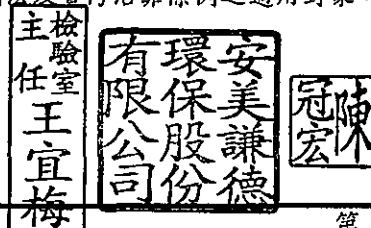 檢驗室
主任
王宜梅
安美謙德
環保股份
有限公司
陳
冠宏
第